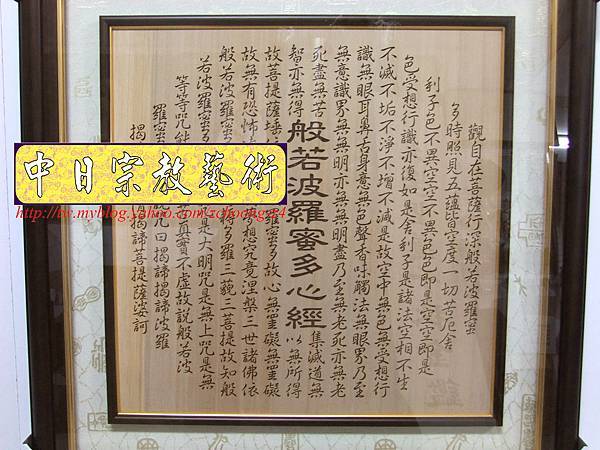 觀自在菩薩行深般若波羅蜜
多時照見五蘊皆空度一切苦厄舍
利子色不異空空不異色色即是空空即是
色受想行識亦復如是舍利子是諸法空相不生
不滅不垢不淨不增不減是故空中無色無受想行
識無眼耳鼻舌身意無色聲香味觸法無眼界乃至
無意識界無無明亦無無明盡乃至無老死亦無老
死盡無苦集滅道無
般若波羅蜜多心經
智亦無得以無所得
故菩提薩埵羅蜜多故心無罣礙無罣礙
故無有恐怖想究竟涅槃三世諸佛依
般若波羅蜜多羅三藐三菩提故知般
若波羅蜜多是大明咒是無上咒是無
等等咒能真實不虛故說般若波
羅蜜說咒曰揭諦揭諦波羅
揭諦揭諦菩提薩婆訶
中日宗教藝術